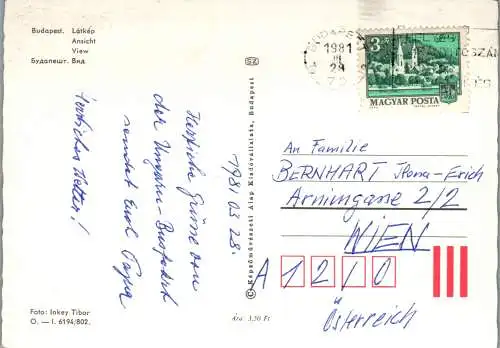 Budapest. Látkép
Ansicht
View
Будапешт. Вид
BUDAPEST
1981
III
28
3
MAGYAR POSTA
Herzliche Grüsse von
der Ungarn-Busfahrt
sendet Euch Papa
Herrliches Wetter!
1981 03 28.
An Familie
BERNHART Ilona-Erich
Arminigasse 2/2
WIEN
A 1210
Österreich
© Képzőművészeti Alap Kiadóvállalata, Budapest
Foto: Inkey Tibor
O. — I. 6194/802.
Ára: 3,50 Ft